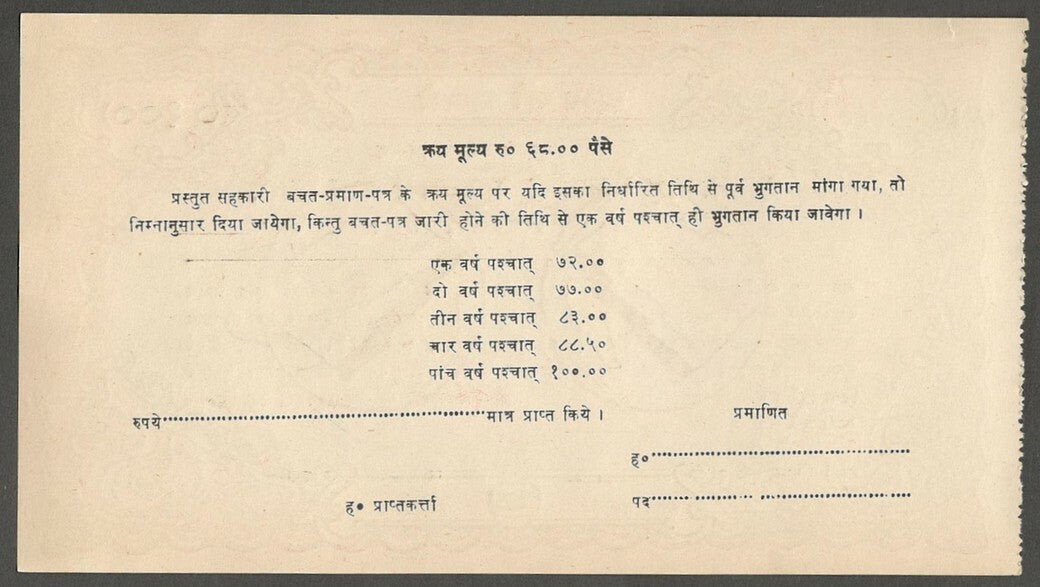 क्रय मूल्य रु० ६८.०० पैंसे
प्रस्तुत सहकारी बचत-प्रमाण-पत्र के क्रय मूल्य पर यदि इसका निर्धारित तिथि से पूर्व भुगतान मांगा गया, तो
निम्नानुसार दिया जायेगा, किन्तु बचत-पत्र जारी होने की तिथि से एक वर्ष पश्चात् ही भुगतान किया जावेगा।
एक वर्ष पश्चात् ७२.००
दो वर्ष पश्चात् ७७.००
तीन वर्ष पश्चात् ८३.००
चार वर्ष पश्चात् ८८.५०
पांच वर्ष पश्चात् १००.००
रुपये.......................................................मात्र प्राप्त किये।
प्रमाणित
ह०.............................................
ह० प्राप्तकर्त्ता
पद.............................................